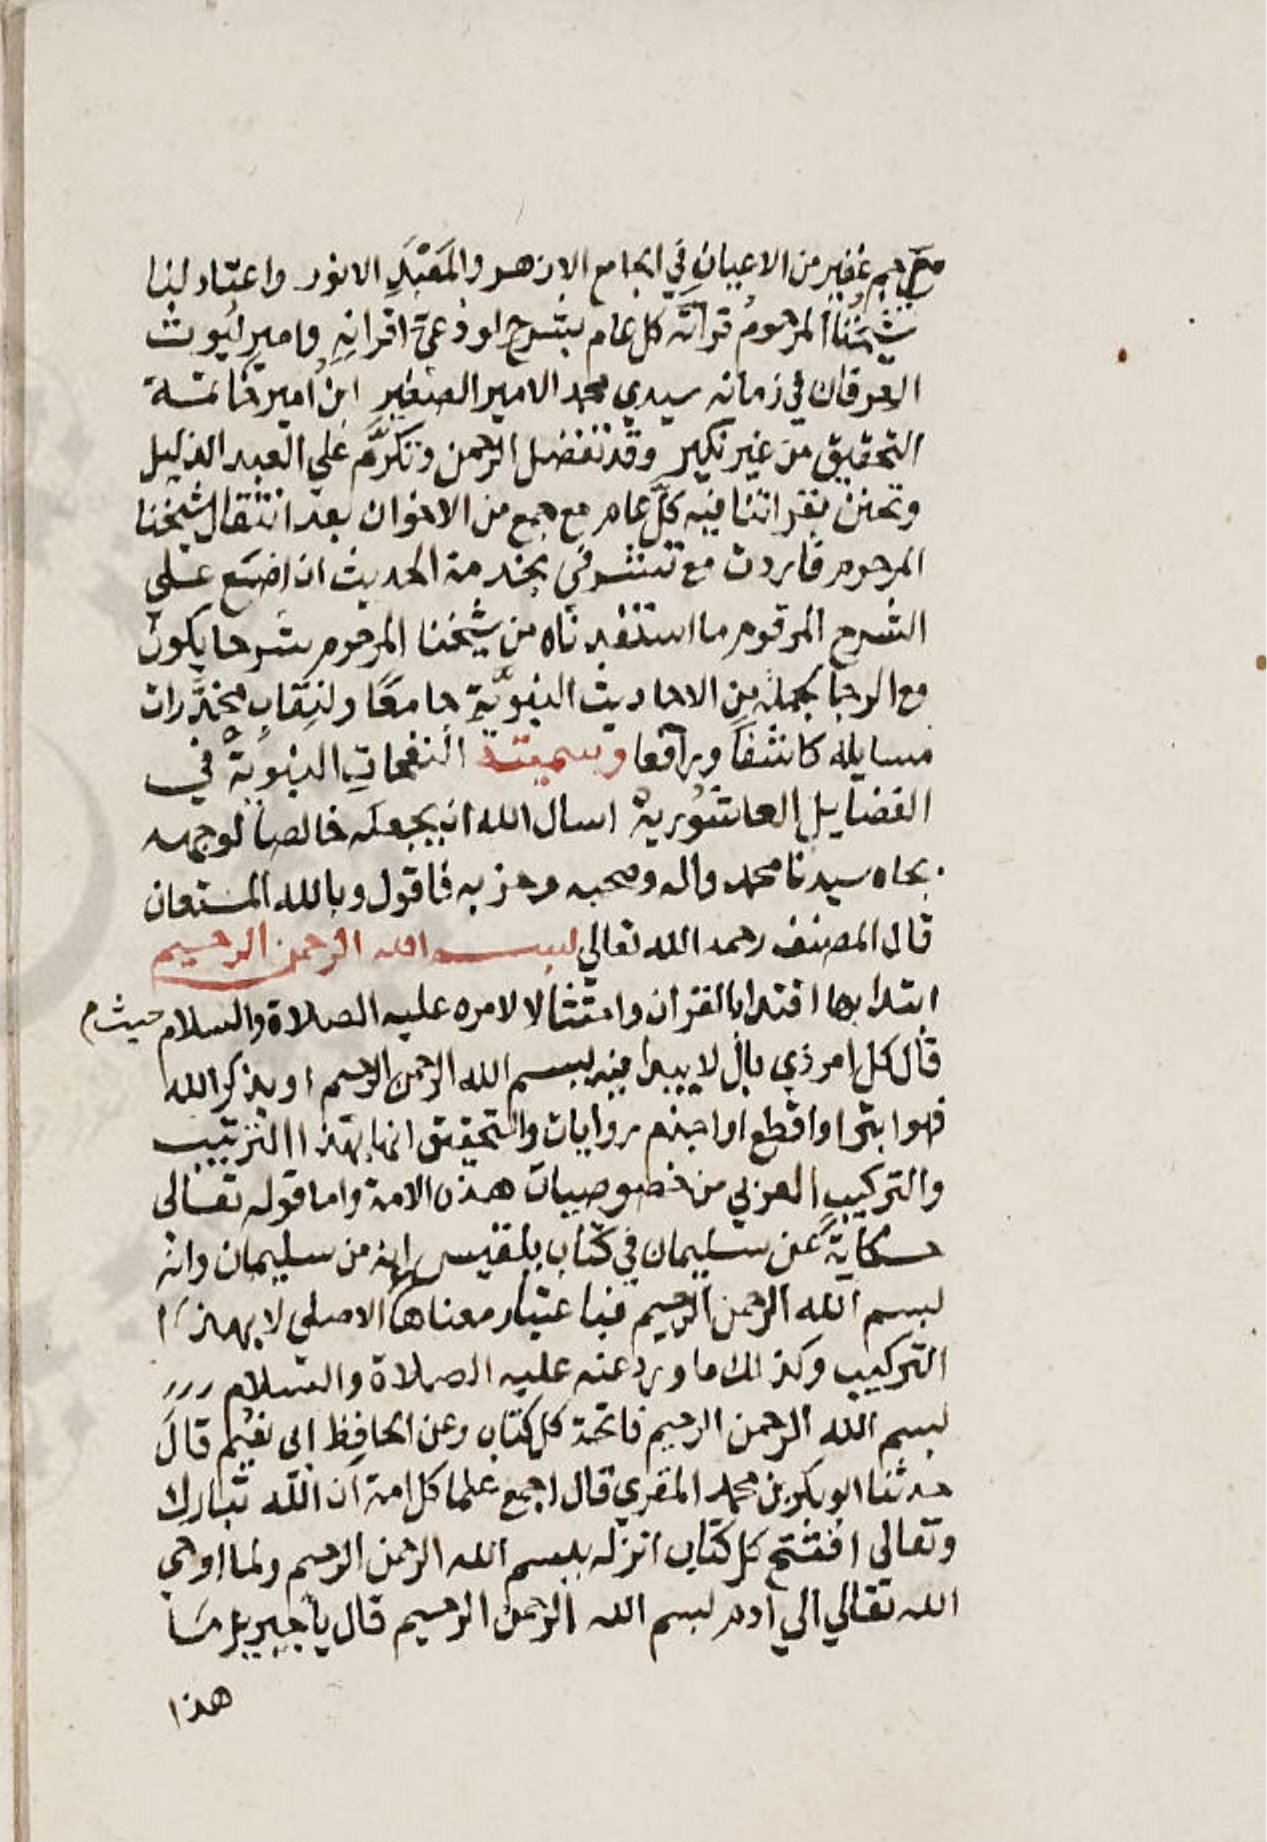 مع جم غفير من الاعيان في الجامع الازهر والمَعْبَدِ الانور واعتاد لنا
شيخُنا المرحومُ قرأته كل عام بشرح لوذعي اقرانِهِ وامير ليوث
العرفان في زمانه سيدي محمد الامير الصغير ابن امير خاتمة
التحقيق من غير نكير وقد تفضل الرحمن وتكرَّم علي العبد الذليل
وتحنن بقراتنا فيه كلَّ عام مع جمع من الاخوان بعد انتقال شيخنا
المرحوم فاردت مع تشرفي بخدمة الحديث ان اضع علي
الشرح المرقوم ما استفدناه من شيخنا المرحوم شرحا يكون
مع الوجا لجملة من الاحاديث النبويَّةِ جامعًا ولنِقابِ مخدَّرات
مسايله كاشفاً ورافعا وسميته النفحاتِ النبويَّة في
الفضايل العاشورية اسال الله ان يجعله خالصاً لوجهه
بجاه سيدنا محمد واله وصحبه وحزبه فاقول وبالله المستعان
قال المصنف رحمه الله تعالي بسم الله الرحمن الرحيم
ابتدا بها اقتدا بالقران وامتثالا لامره عليه الصلاة والسلام حيث م
قال كل امر ذي بال لا يبدا فيه ببسم الله الرحمن الرحيم او بذكر الله
فهو ابترا واقطع او اجذم روايات والتحقيق انها بهذا الترتيب
والتركيبِ العربي من خصوصيات هذه الامة واما قوله تعالى
حكايةً عن سليمان في كتاب بلقيس انه من سليمان وانه
بسم الله الرحمن الرحيم فباعتبار معناها الاصلي لا بهذا
التركيب وكذلك ما ورد عنه عليه الصلاة والسلام
بسم الله الرحمن الرحيم فاتحة كل كتاب وعن الحافِظ ابي نعيم قال
حدثنا ابو بكر بن محمد المقري قال اجمع علما كل امة ان الله تبارك
وتعالي افتتح كل كتاب انزله ببسم الله الرحمن الرحيم ولما اوحي
الله تعالي الي ادم بسم الله الرحمن الرحيم قال يا جبريل ما
هذا